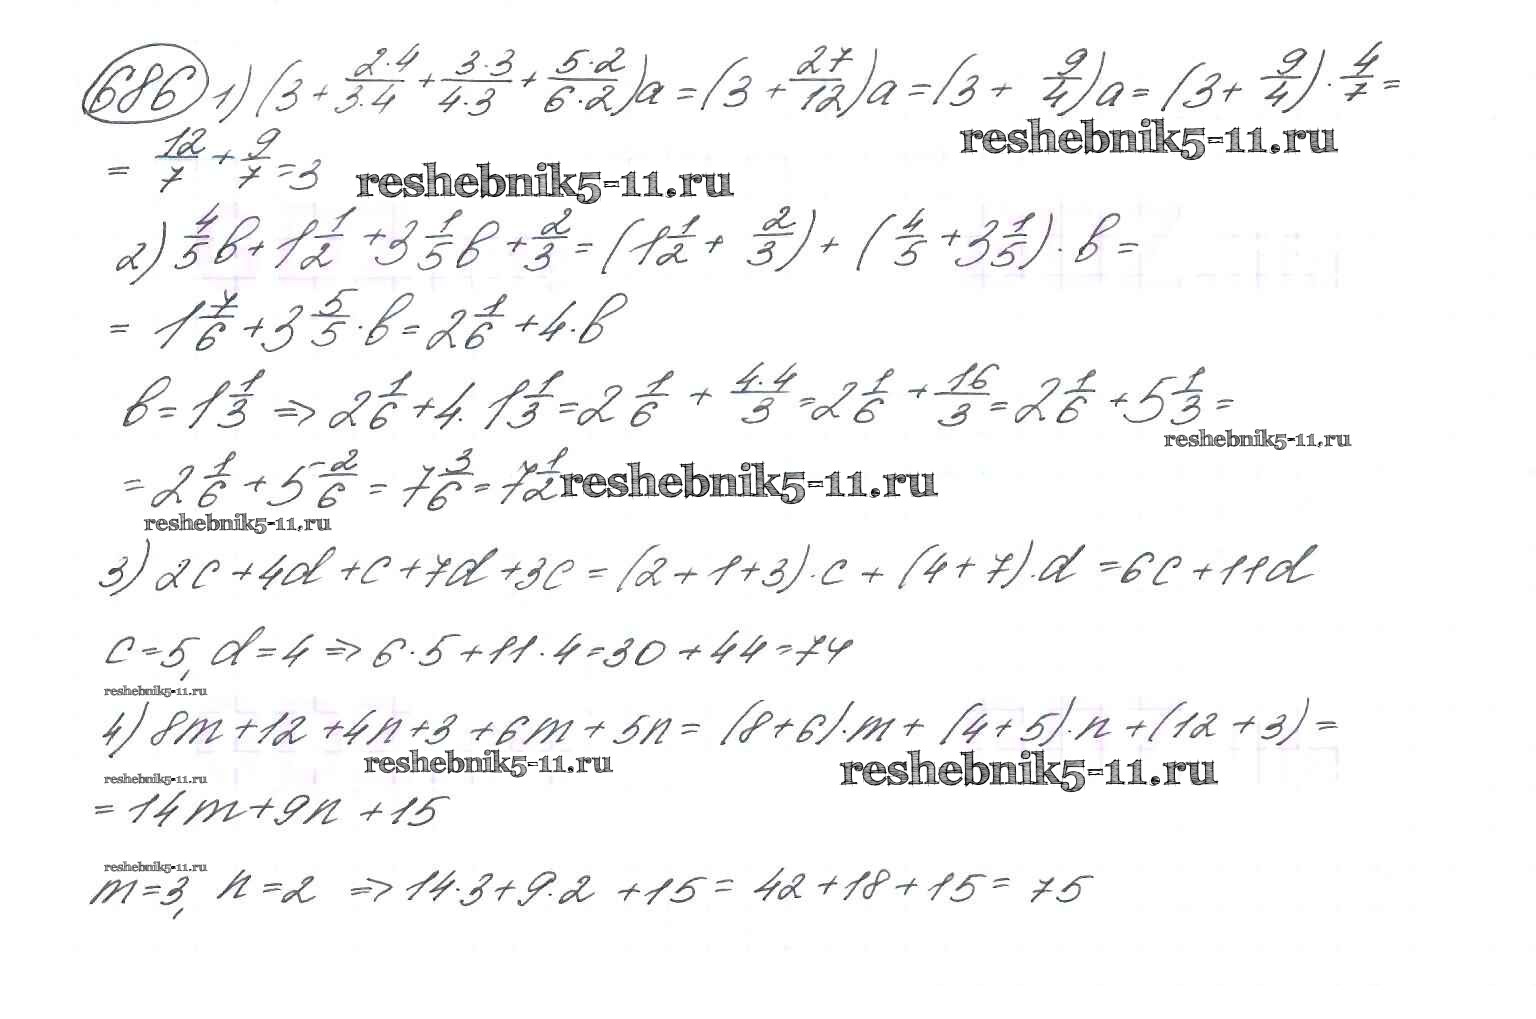 686 1) (3 + 2·4/3·4 + 3·3/4·3 + 5·2/6·2)a = (3 + 27/12)a = (3 + 9/4)a = (3 + 9/4) · 4/7 =
reshebnik5-11.ru
= 12/7 + 9/7 = 3
reshebnik5-11.ru
2) 4/5 b + 1 1/2 + 3 1/5 b + 2/3 = (1 1/2 + 2/3) + (4/5 + 3 1/5) · b =
= 1 7/6 + 3 5/5 · b = 2 1/6 + 4 · b
b = 1 1/3 => 2 1/6 + 4 · 1 1/3 = 2 1/6 + 4·4/3 = 2 1/6 + 16/3 = 2 1/6 + 5 1/3 =
reshebnik5-11.ru
= 2 1/6 + 5 2/6 = 7 3/6 = 7 1/2
reshebnik5-11.ru
reshebnik5-11.ru
3) 2c + 4d + c + 7d + 3c = (2 + 1 + 3) · c + (4 + 7) · d = 6c + 11d
c = 5, d = 4 => 6 · 5 + 11 · 4 = 30 + 44 = 74
reshebnik5-11.ru
4) 8m + 12 + 4n + 3 + 6m + 5n = (8 + 6) · m + (4 + 5) · n + (12 + 3) =
reshebnik5-11.ru
reshebnik5-11.ru
reshebnik5-11.ru
= 14m + 9n + 15
reshebnik5-11.ru
m = 3, n = 2 => 14 · 3 + 9 · 2 + 15 = 42 + 18 + 15 = 75